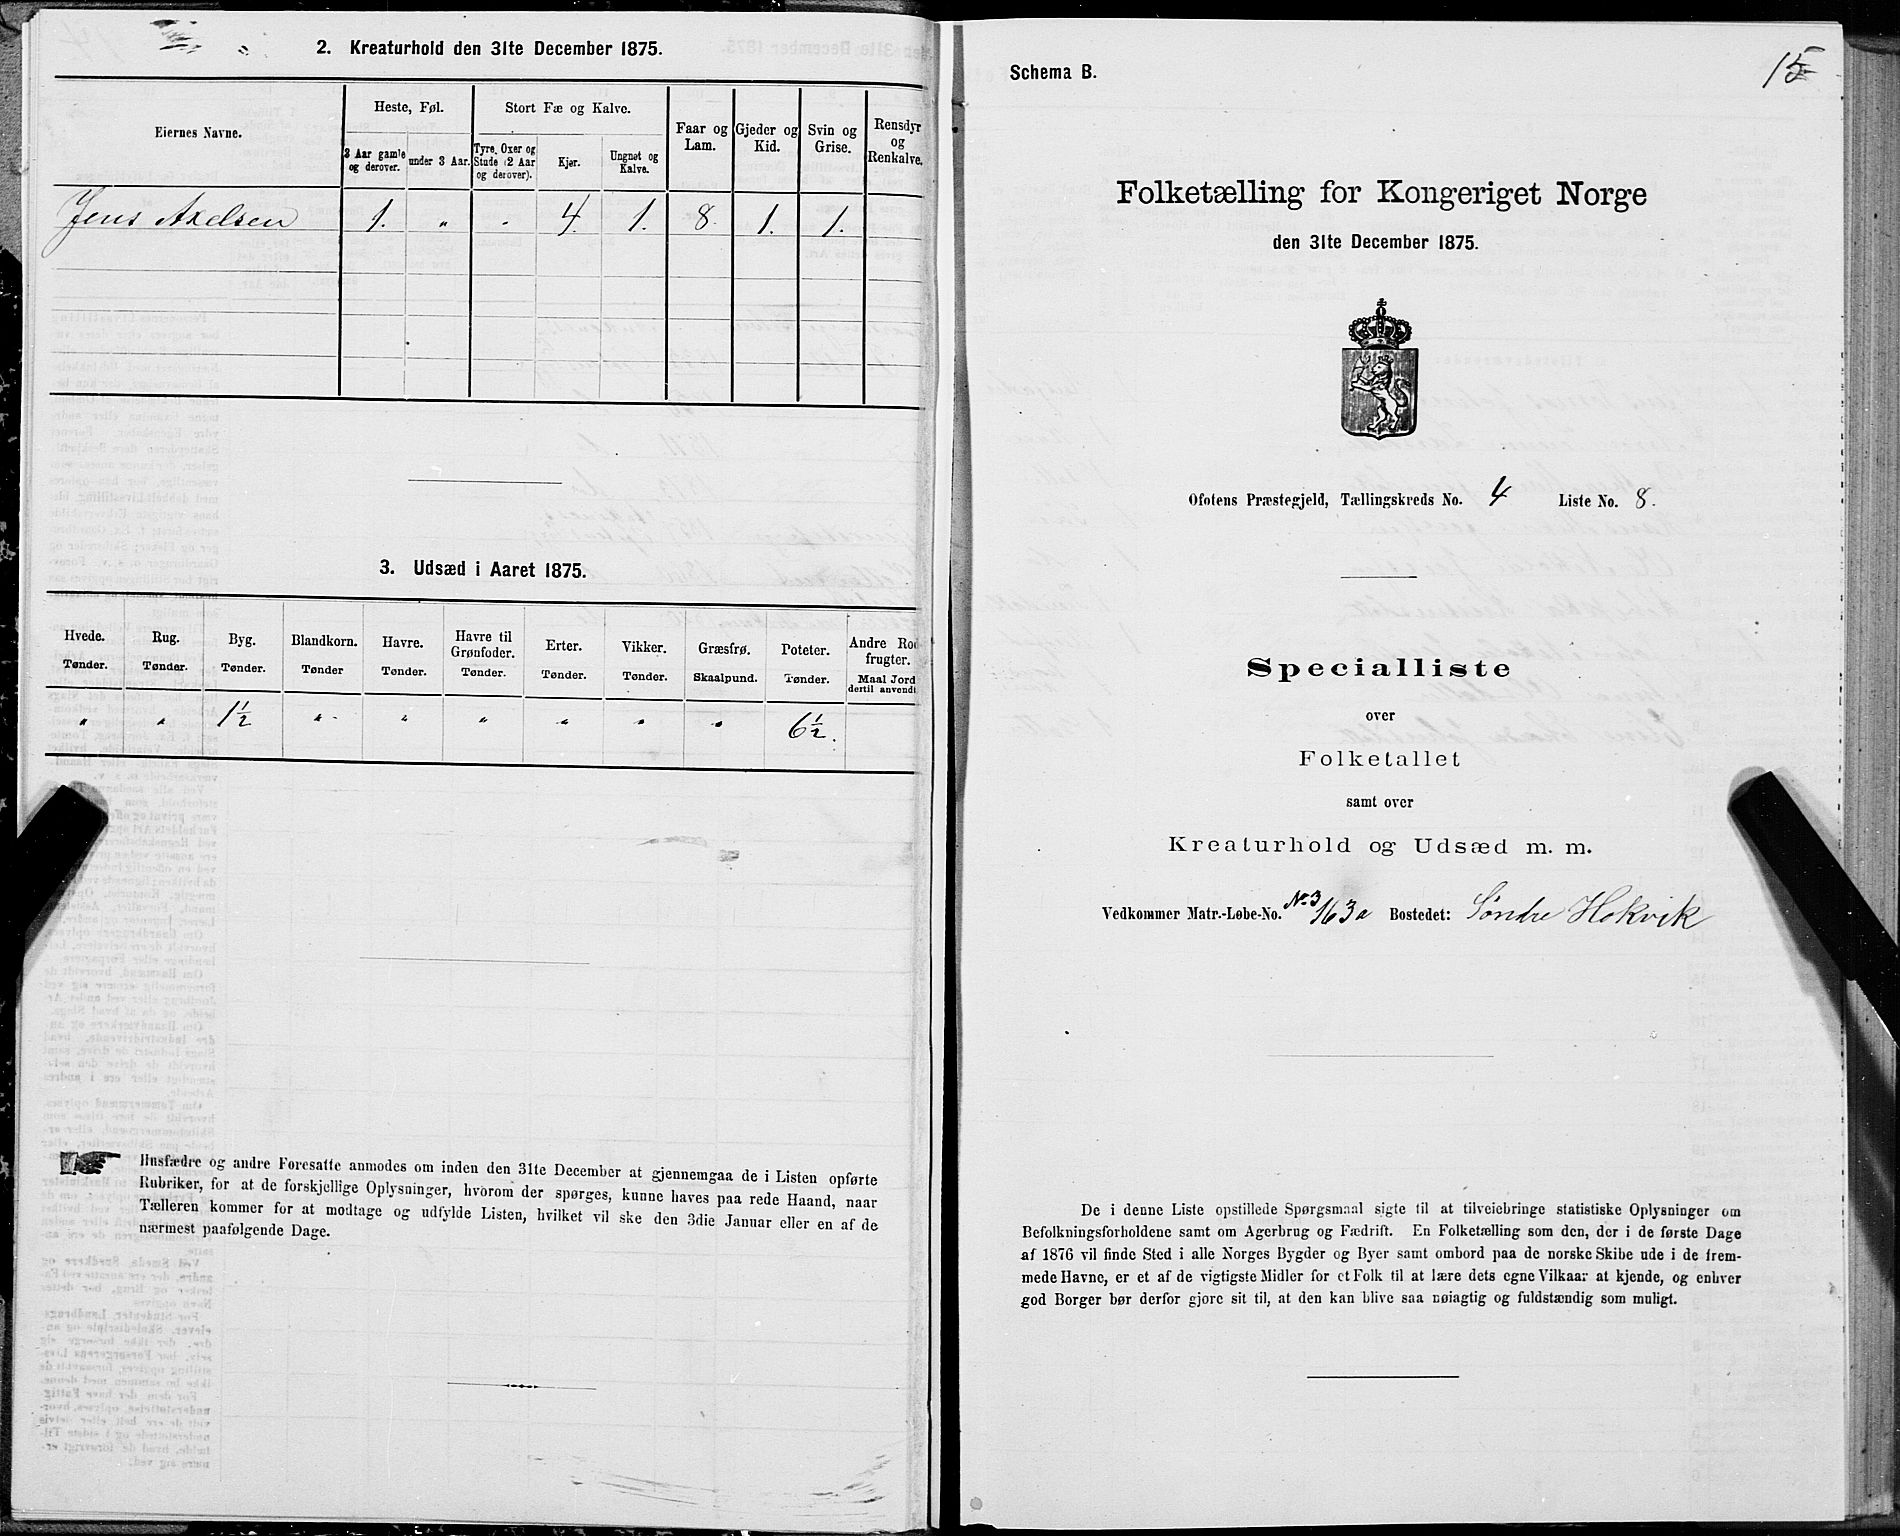 2. Kreaturhold den 31te December 1875.
Eiernes Navne.
Heste, Føl.
Stort Fæ og Kalve.
Faar og Lam.
Gjeder og Kid.
Svin og Grise.
Rensdyr og Renkalve.
3 Aar gamle og derover.
under 3 Aar.
Tyre, Oxer og Stude (2 Aar og derover).
Kjør.
Ungnøt og Kalve.
Jens Axelsen 1. " " 4. 1. 8. 1. 1.
3. Udsæd i Aaret 1875.
Hvede. Rug. Byg. Blandkorn. Havre. Havre til Grønfoder. Erter. Vikker. Græsfrø. Poteter. Andre Rodfrugter.
Tønder. Tønder. Tønder. Tønder Tønder. Tønder. Tønder. Tønder. Skaalpund. Tønder. Maal Jord dertil anvendt.
" " 1½ " " " " " " 6½.
Husfædre og andre Foresatte anmodes om inden den 31te December at gjennemgaa de i Listen opførte
Rubriker, for at de forskjellige Oplysninger, hvorom der spørges, kunne haves paa rede Haand, naar
Tælleren kommer for at modtage og udfylde Listen, hvilket vil ske den 3die Januar eller en af de
nærmest paafølgende Dage.
15
Schema B.
Folketælling for Kongeriget Norge
den 31te December 1875.
Ofotens Præstegjeld, Tællingskreds No. 4 Liste No. 8.
Specialliste
over
Folketallet
samt over
Kreaturhold og Udsæd m. m.
Vedkommer Matr.-Løbe-No. No 3 163a Bostedet: Søndre Hokvik
De i denne Liste opstillede Spørgsmaal sigte til at tilveiebringe statistiske Oplysninger om
Befolkningsforholdene samt om Agerbrug og Fædrift. En Folketælling som den, der i de første Dage
af 1876 vil finde Sted i alle Norges Bygder og Byer samt ombord paa de norske Skibe ude i de frem-
mede Havne, er et af de vigtigste Midler for et Folk til at lære dets egne Vilkaar at kjende, og enhver
god Borger bør derfor gjøre sit til, at den kan blive saa nøiagtig og fuldstændig som muligt.